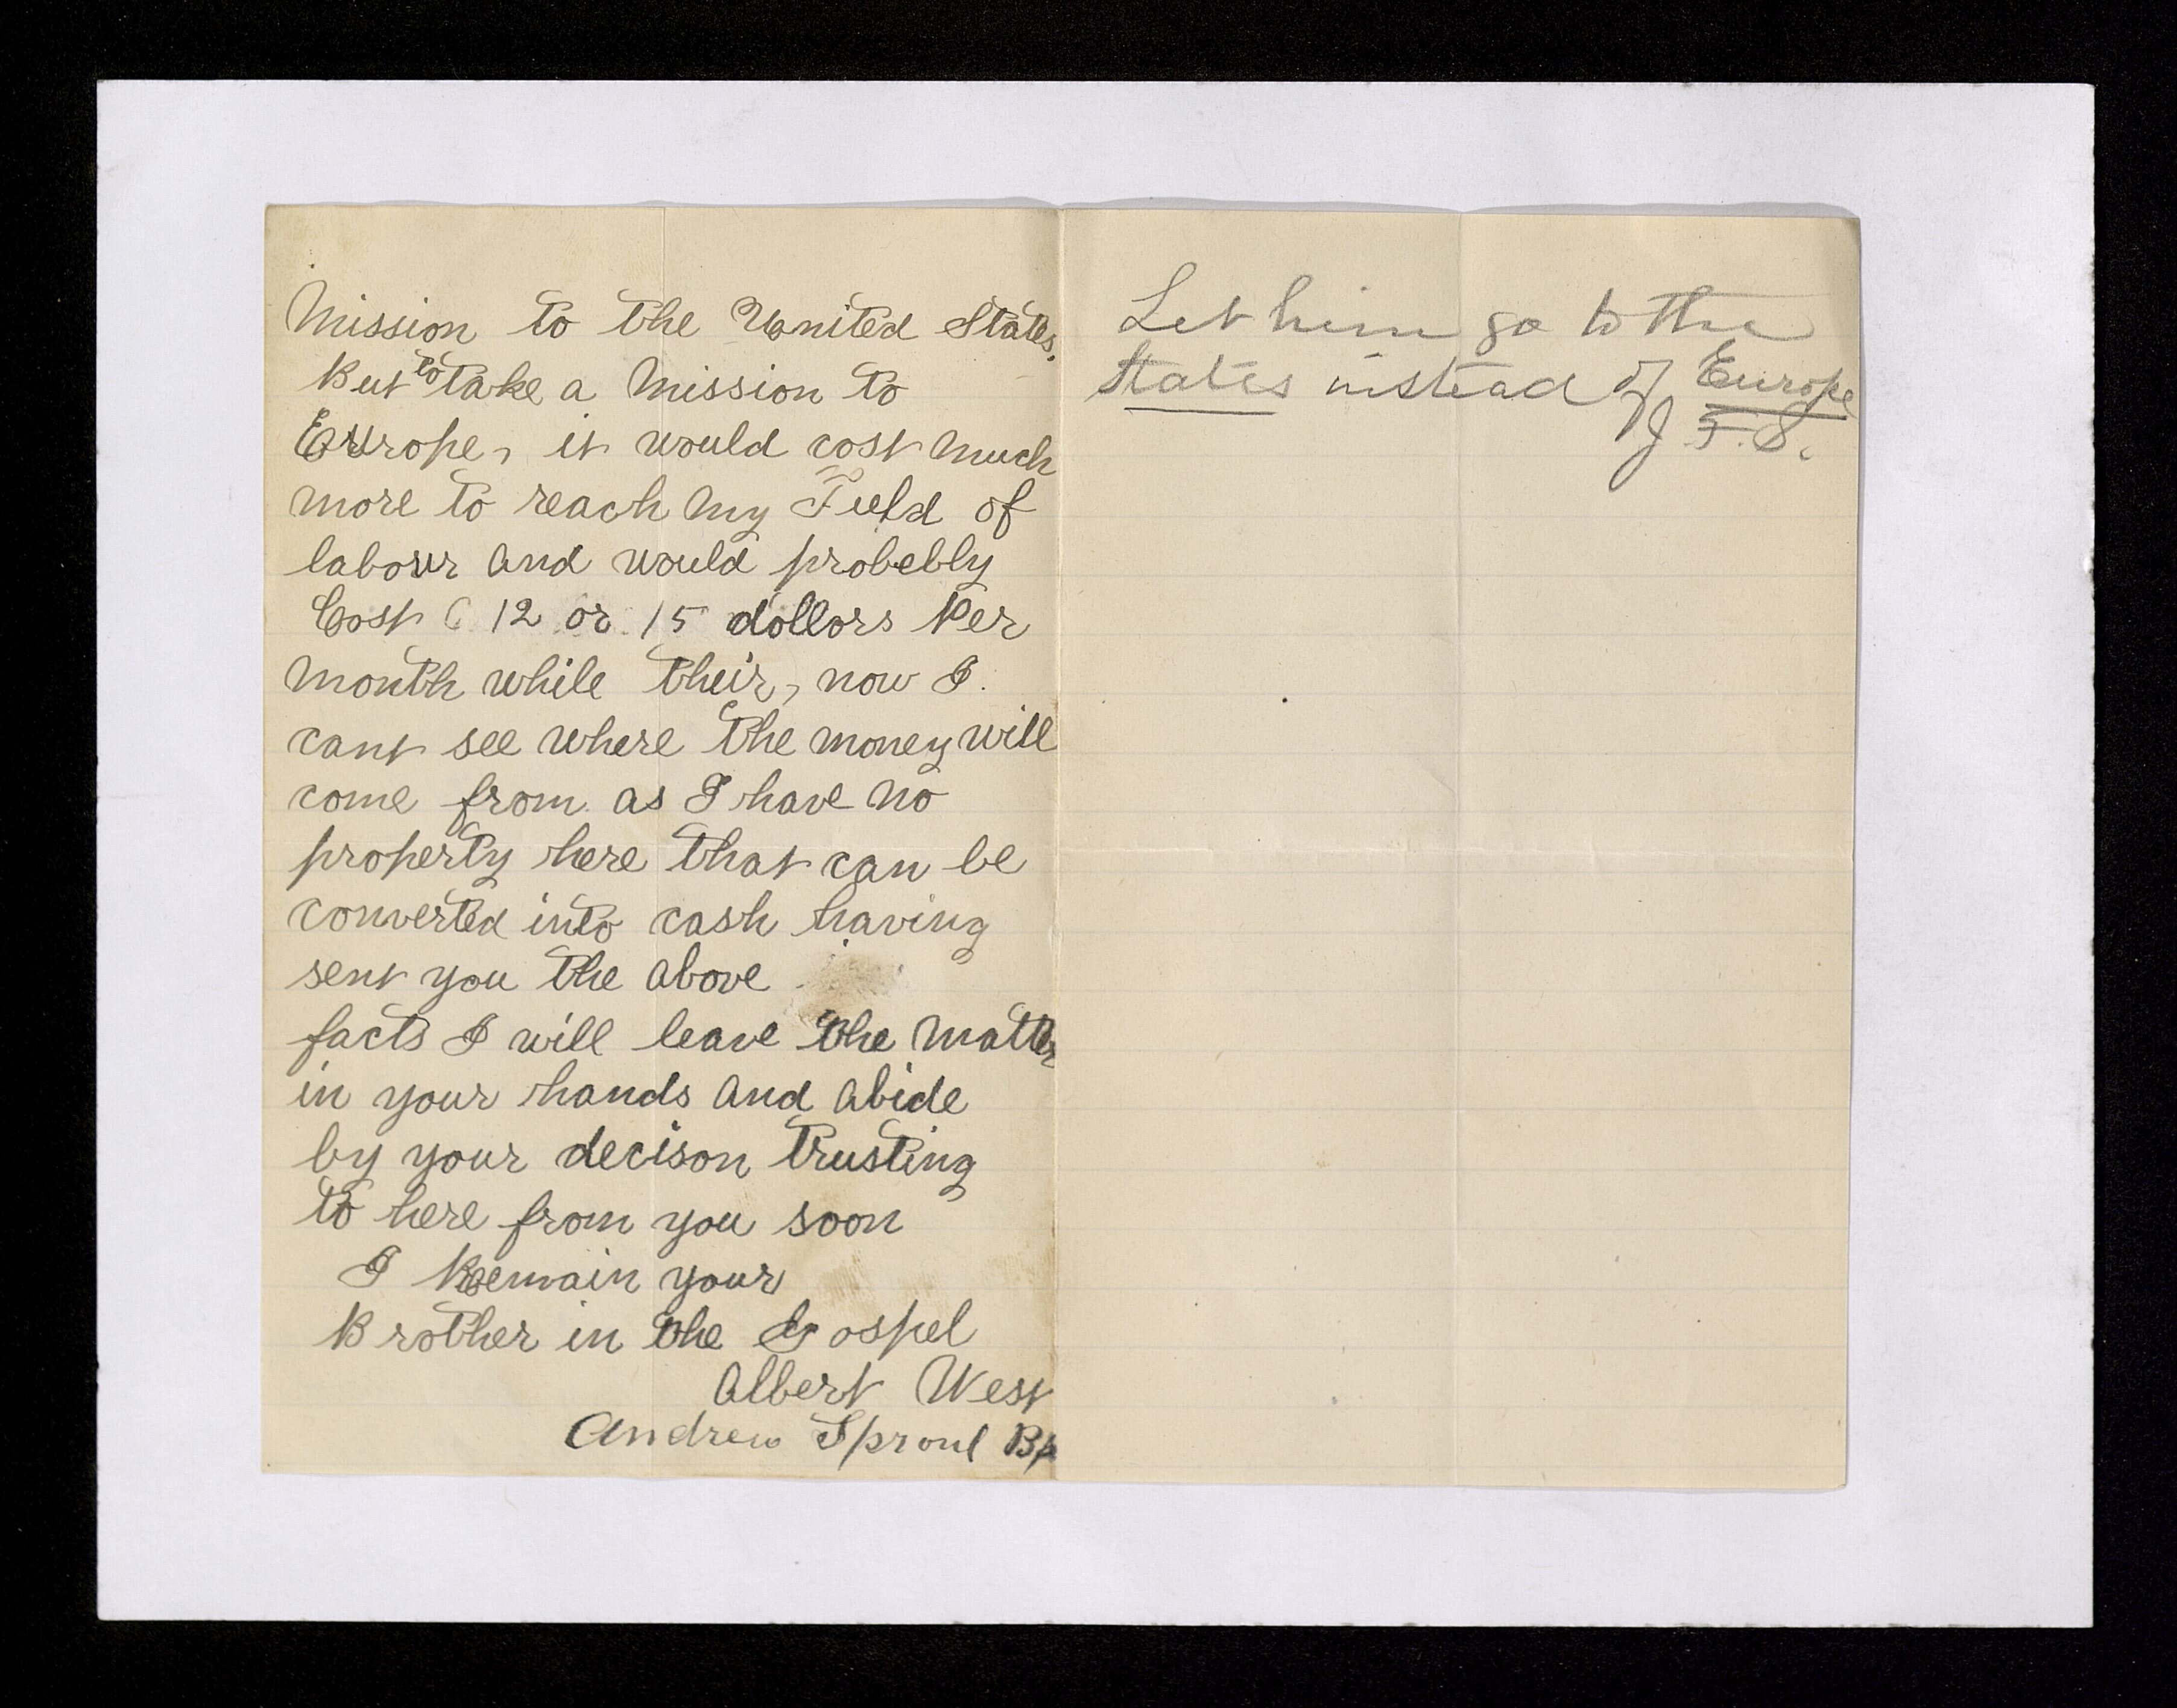 Mission to the United States,
But to take a Mission to
Europe, it would cost much
more to reach my Field of
labour and would probebly
Cost 12 or 15 dollors Per
month while their, now I
cant see where the money will
come from as I have no
property here that can be
converted into cash having
sent you the above
facts I will leave the matter
in your hands and abide
by your decison trusting
to here from you soon
I Remain your
Brother in the Gospel
Albert West
Andrew Sproul Bp
Let him go to the
States instead of Europe
J. F. S.